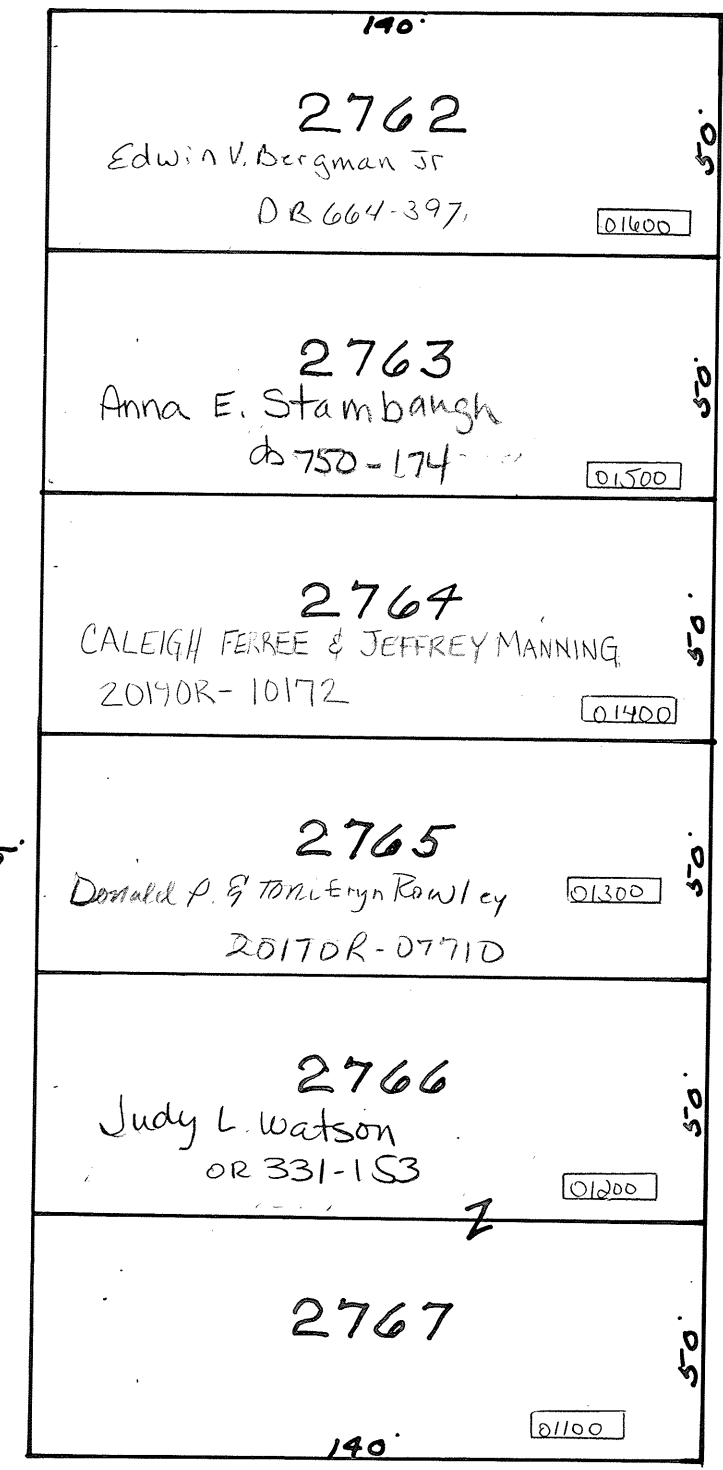 140'
2762
50'
Edwin V. Bergman Jr
DB 664-397
01600
2763
50'
Anna E. Stambaugh
db 750-174
01500
2764
50'
CALEIGH FERREE & JEFFREY MANNING
2019OR-10172
01400
2765
50'
Donald P. & Toni Eryn Rowley
01300
2017OR-07710
2766
50'
Judy L. Watson
OR 331-153
01200
Z
2767
50'
01100
140'